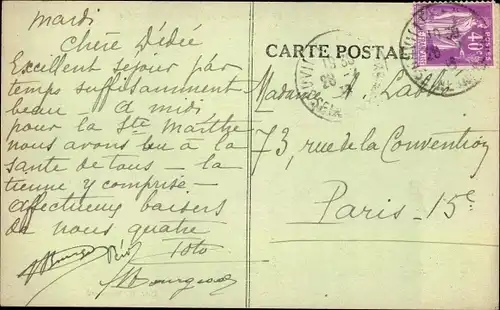 Mardi
Chère Dédée
Excellent séjour par
temps suffisamment
beau - A midi
pour la Ste Marthe
nous avons bu à la
santé de tous - la
tienne y comprise -
affectueux baisers
de nous quatre
Toto
Bourgeois
CARTE POSTALE
Madame
73, rue de la Convention
Paris - 15e
40c
POSTES
28